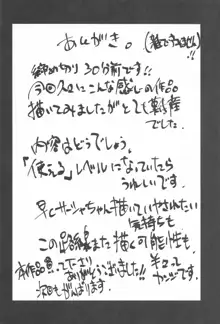 あとがき。
締め切り30分前です!!
今回久々にこんな感じの作品
描いてみましたがとても新鮮
でした。
内容はどうでしょう。
「使える」レベルになっていたら
うれしいです。
早くサージャちゃん描いていやされたい
気持ちも
この路線また描く可能性も
半々って
カンジです。
本作品買って下さり
ありがとうございました!!
次回もがんばります。